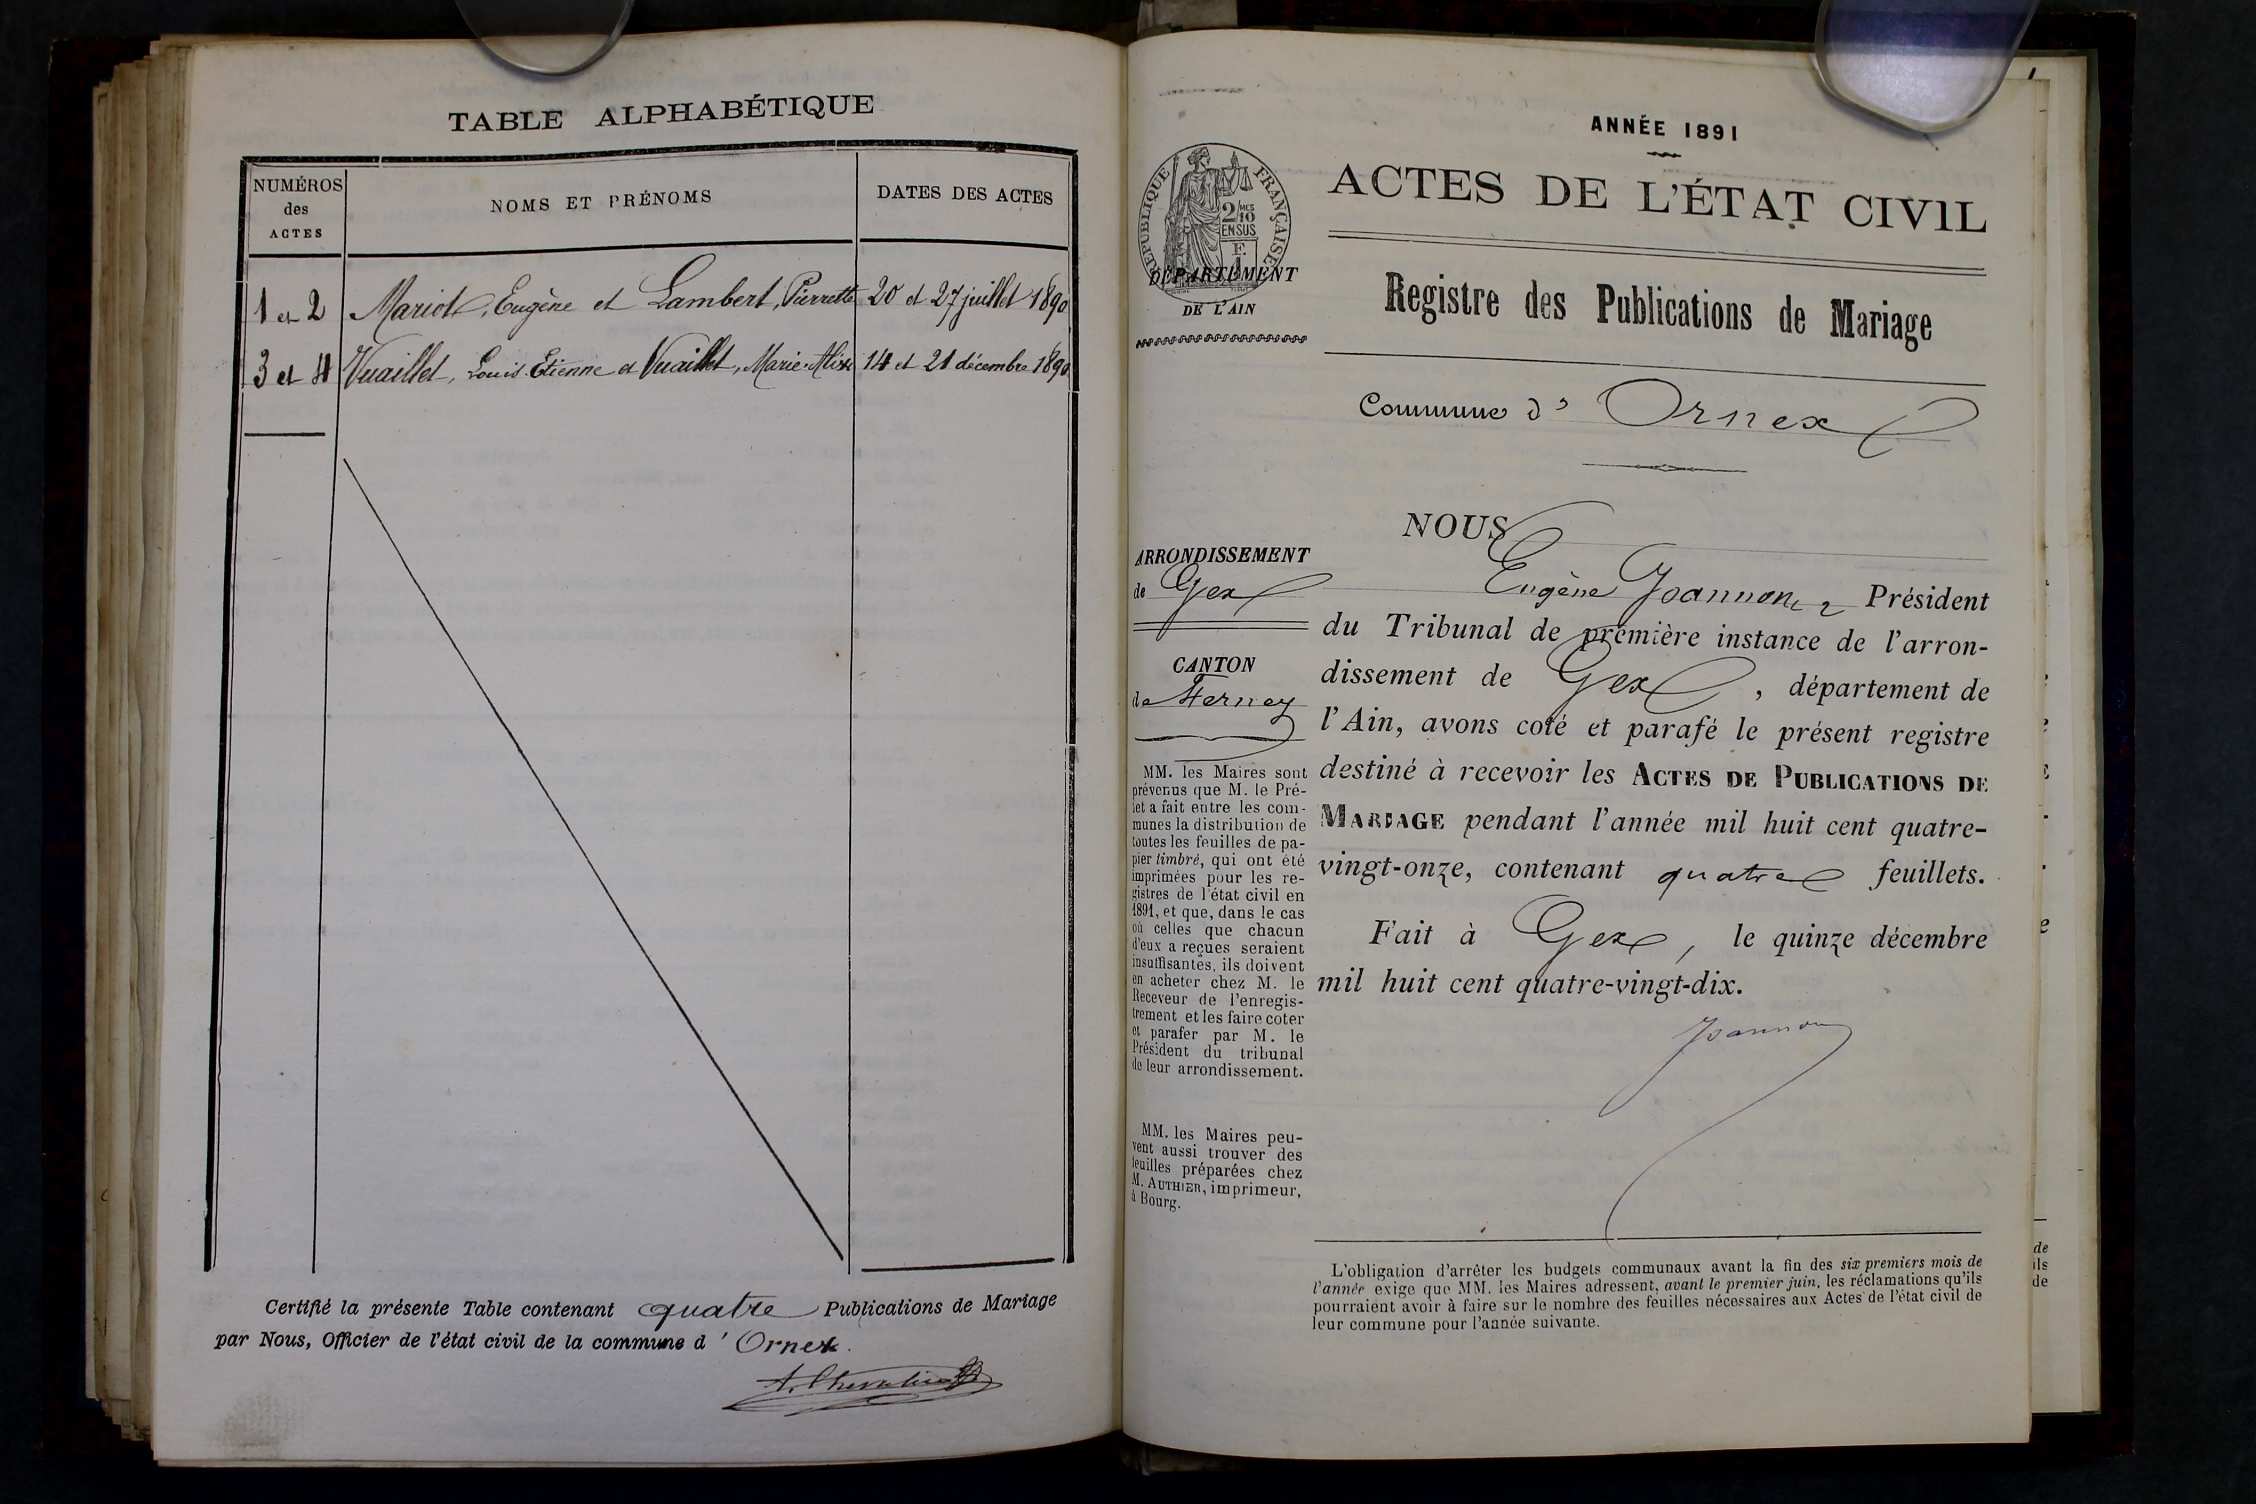 TABLE ALPHABÉTIQUE
NUMÉROS
des
ACTES
NOMS ET PRÉNOMS
DATES DES ACTES
1 et 2 Mariot, Eugène et Lambert, Pierrette 20 et 27 juillet 1890
3 et 4 Vuaillet, Louis-Etienne et Vuaillet, Marie-Alix 14 et 21 décembre 1890
Certifié la présente Table contenant quatre Publications de Mariage
par Nous, Officier de l'état civil de la commune d' Ornex.
ANNÉE 1891
ACTES DE L'ÉTAT CIVIL
RÉPUBLIQUE FRANÇAISE
2/10 MES
EN SUS
DÉPARTEMENT
DE L'AIN
Registre des Publications de Mariage
Commune d' Ornex
ARRONDISSEMENT
de Gex
CANTON
de Ferney
MM. les Maires sont
prévenus que M. le Pré-
fet a fait entre les com-
munes la distribution de
toutes les feuilles de pa-
pier timbré, qui ont été
imprimées pour les re-
gistres de l'état civil en
1891, et que, dans le cas
où celles que chacun
d'eux a reçues seraient
insuffisantes, ils doivent
en acheter chez M. le
Receveur de l'enregis-
trement et les faire coter
et parafer par M. le
Président du tribunal
de leur arrondissement.
MM. les Maires peu-
vent aussi trouver des
feuilles préparées chez
M. AUTHIER, imprimeur,
à Bourg.
NOUS
Eugène Joannon, Président
du Tribunal de première instance de l'arron-
dissement de Gex, département de
l'Ain, avons coté et parafé le présent registre
destiné à recevoir les ACTES DE PUBLICATIONS DE
MARIAGE pendant l'année mil huit cent quatre-
vingt-onze, contenant quatre feuillets.
Fait à Gex, le quinze décembre
mil huit cent quatre-vingt-dix.
Joannon
L'obligation d'arrêter les budgets communaux avant la fin des six premiers mois de
l'année exige que MM. les Maires adressent, avant le premier juin, les réclamations qu'ils
pourraient avoir à faire sur le nombre des feuilles nécessaires aux Actes de l'état civil de
leur commune pour l'année suivante.